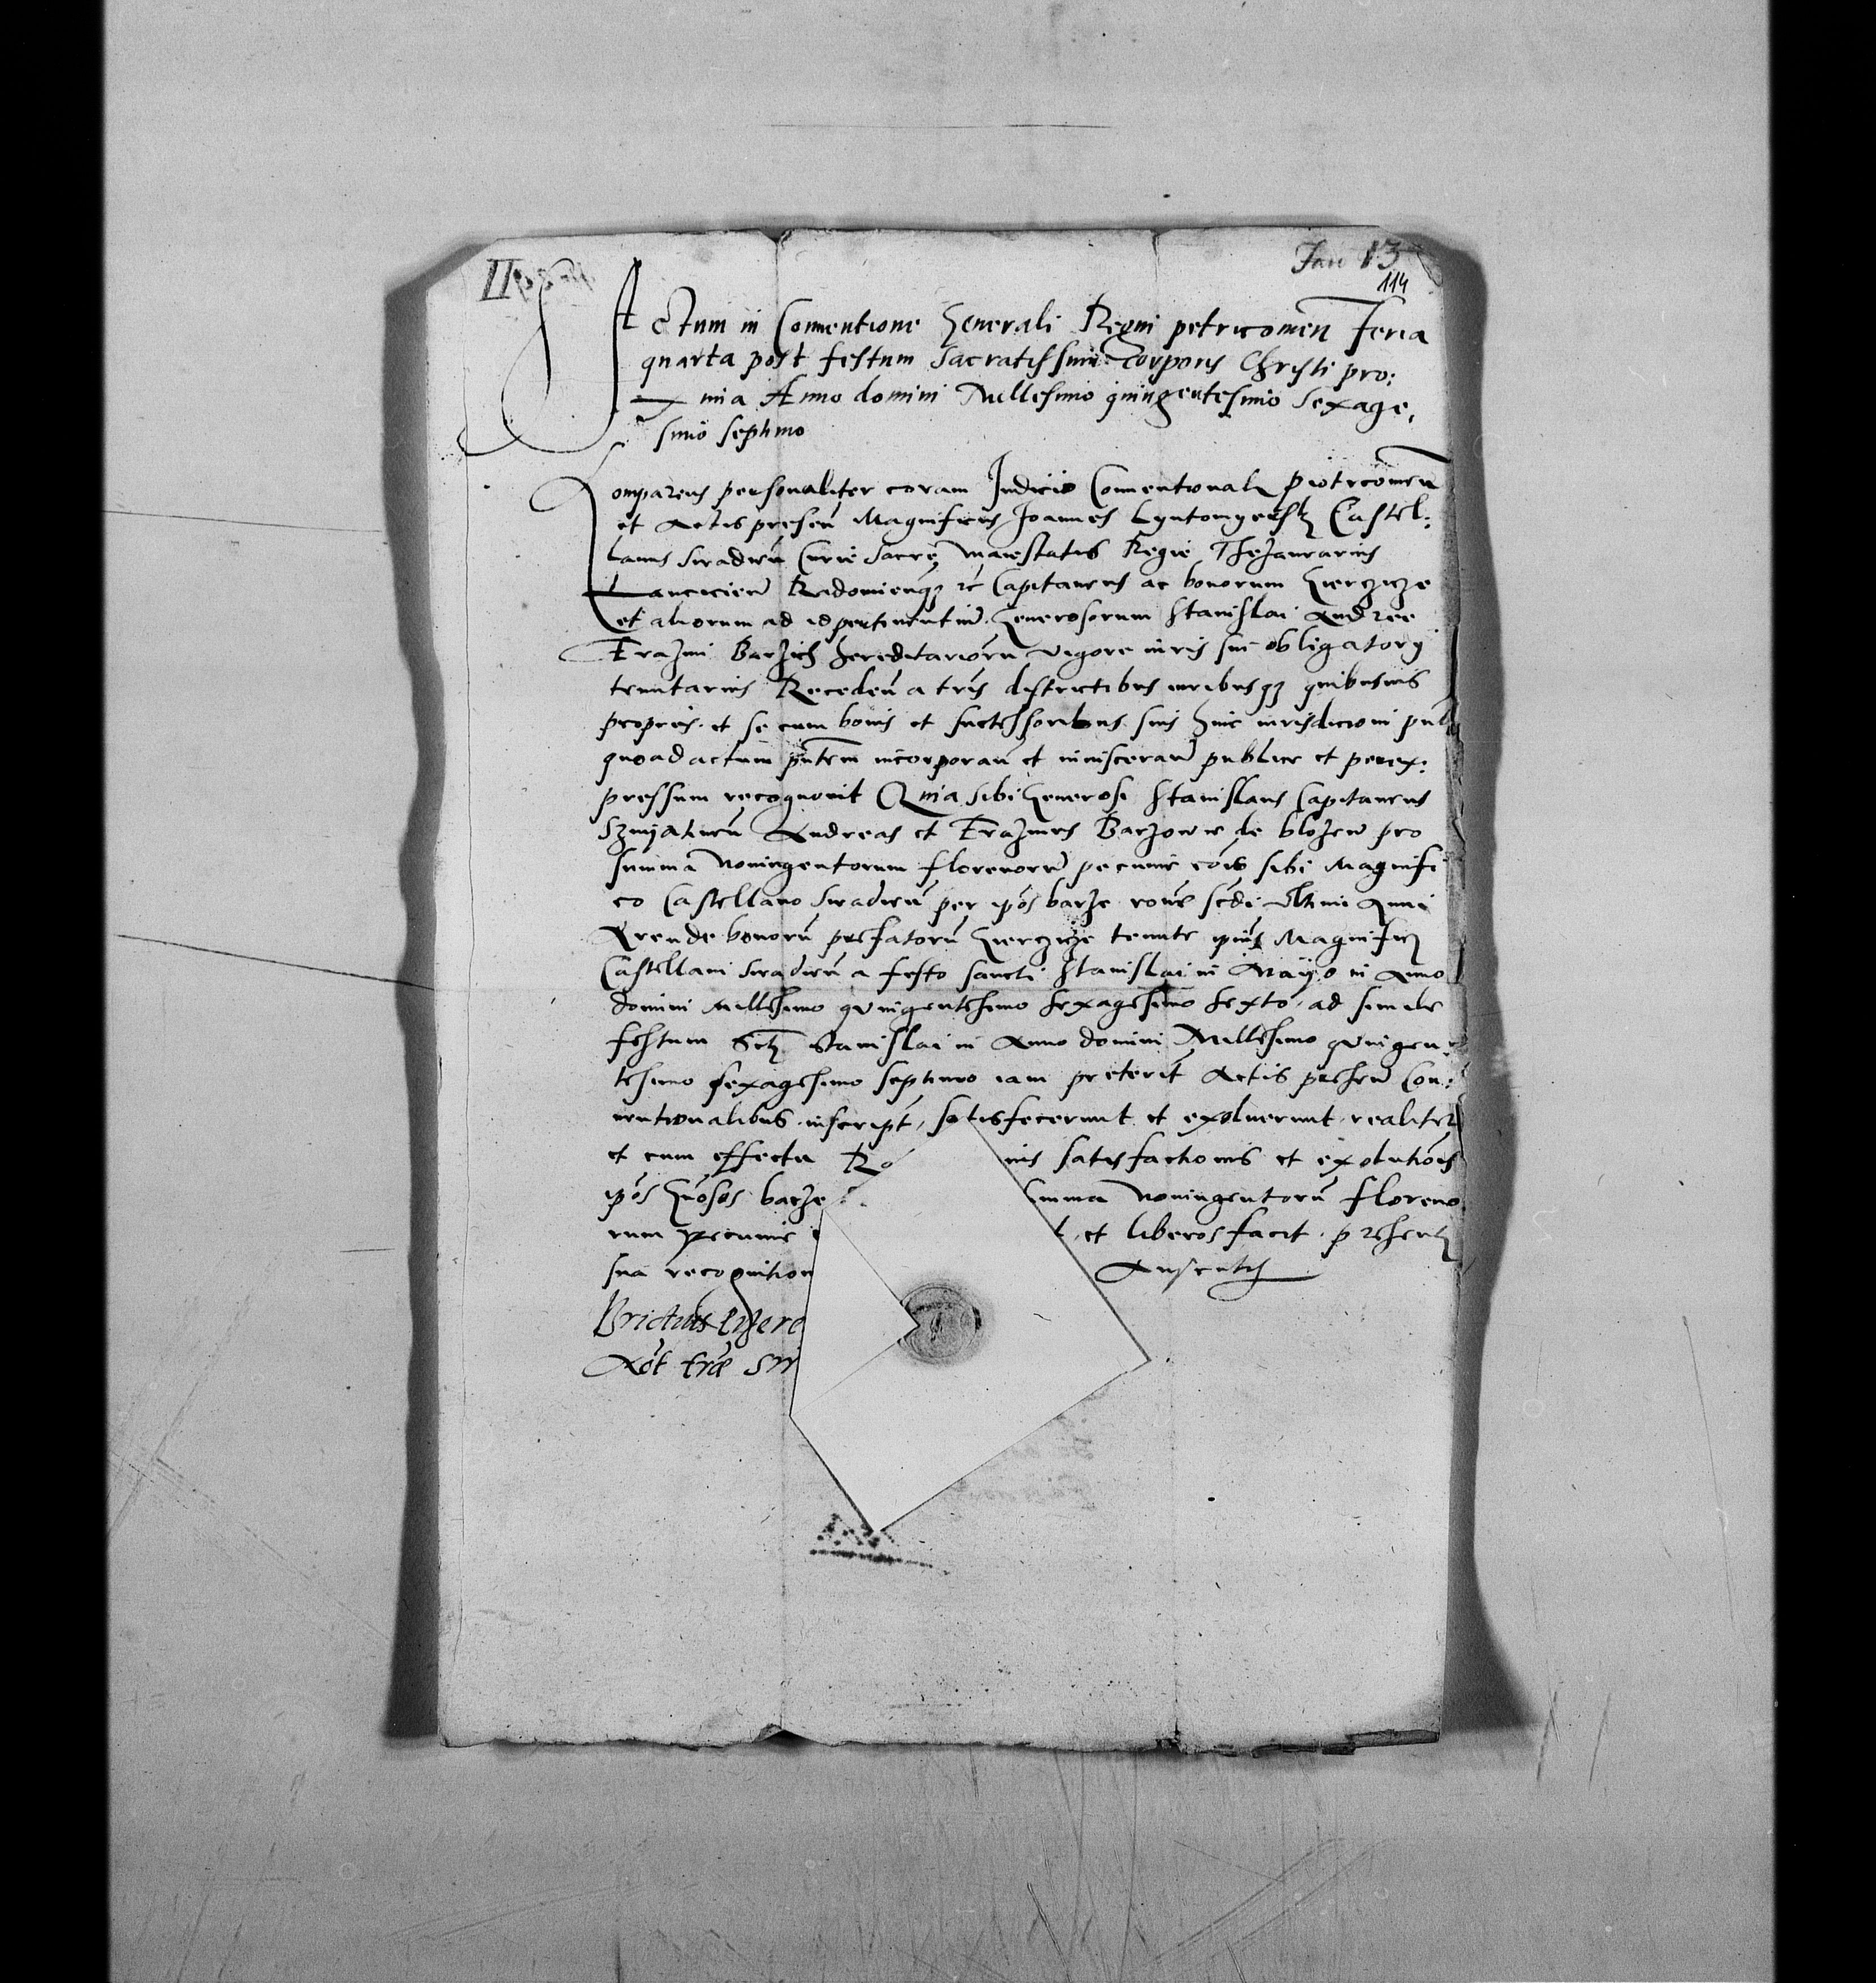 II
Jan 13
114
Actum in Conventione Generali Regni petricovien̄ Feria
quarta post festum Sacratissimi Corporis Christi pro:
xima Anno domini Millesimo quingentesimo Sexage,
simo septimo
Comparens personaliter coram Judicio Conventionali piotrcovien̄
et Actis presen̄ Magnificus Joannes Lyutomyersky Castel:
lanus Siradien̄ Curie Sacre Maiestatis Regie Thezaurarius
Lancicien̄ Radomienqꝫ et̄c Capitaneus ac bonorum
et aliorum ad id pertinentiu̅ Generosorum Stanislai Andree
Erazmi Barzich hereditarioru̅ vigore iuris sui obligatorÿ
tenutarius Receden̄ a tr̄is districtibus iuribusqꝫ quibusvis
proprÿs et se cum bonis et successoribus suis huic iurisdicioni
quoad actum pn̄tem incorporan̄ et invisceran̄ publice et per ex:
pressum recognovit Quia sibi Generosi Stanislaus Capitaneus
Szniatinen̄ Andreas et Erazmus Barzowie de blozew pro
summa Noningentorum florenoru̅ pecunie co͞is sibi Magnifi
co Castellano Siradien̄ per ip̄os barze ro͞ne sc̄di ultimi Anni
Arende bonoru̅ prefatoru̅ tenute ip̄ius Magnifici
Castellani Siradien̄ a festo sancti Stanislai in Mayo in Anno
domini Millesimo quingentesimo sexagesimo sexto ad simile
festum Scti Stanislai in Anno domini Millesimo quingen:
tesimo sexagesimo septimo iam preterit̄ Actis presen̄ Con:
ventionalibus inscript̄, satisfecerunt et exolverunt realiter
et cum effectu Ro nis satisfactionis et exolutio͞is
ip̄os Gn̄osos barze umma Noningentoru̅ floreno
rum pecunie et liberos facit presenti
sua recognition
Brictius
Not̄ tr̄æ Sir